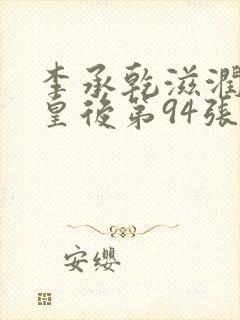 李承乾滋潤
皇後第94張
安缨